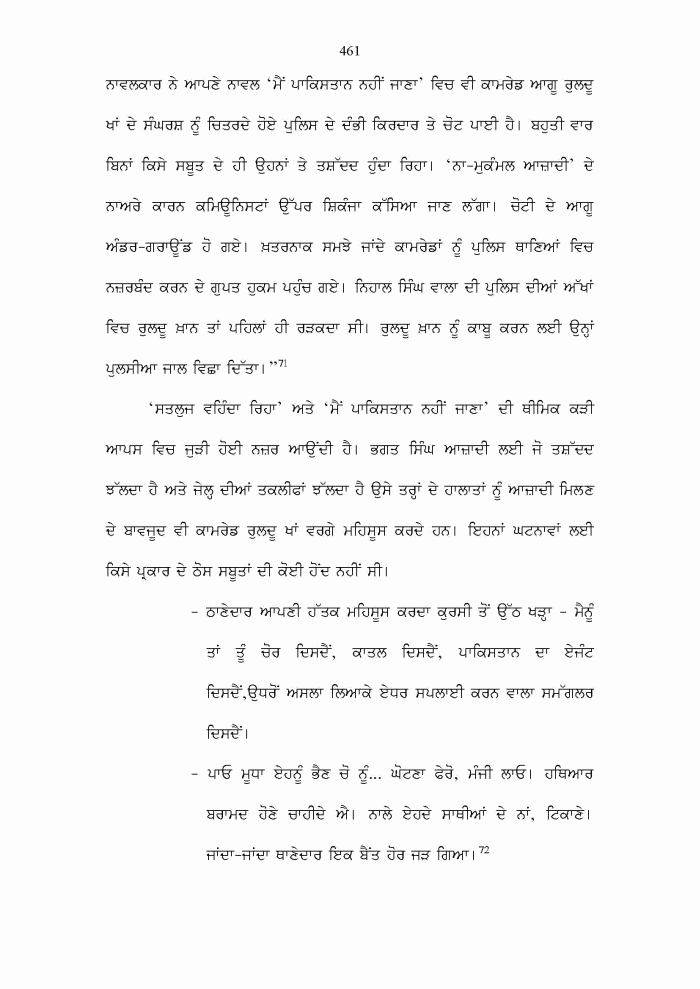 461
ਨਾਵਲਕਾਰ ਨੇ ਆਪਣੇ ਨਾਵਲ ‘ਮੈਂ ਪਾਕਿਸਤਾਨ ਨਹੀਂ ਜਾਣਾ’ ਵਿਚ ਵੀ ਕਾਮਰੇਡ ਆਗੂ ਰੁਲਦੂ
ਖਾਂ ਦੇ ਸੰਘਰਸ਼ ਨੂੰ ਚਿਤਰਦੇ ਹੋਏ ਪੁਲਿਸ ਦੇ ਦੰਭੀ ਕਿਰਦਾਰ ਤੇ ਚੋਟ ਪਾਈ ਹੈ। ਬਹੁਤੀ ਵਾਰ
ਬਿਨਾਂ ਕਿਸੇ ਸਬੂਤ ਦੇ ਹੀ ਉਹਨਾਂ ਤੇ ਤਸ਼ੱਦਦ ਹੁੰਦਾ ਰਿਹਾ। ‘ਨਾ-ਮੁਕੰਮਲ ਆਜ਼ਾਦੀ’ ਦੇ
ਨਾਅਰੇ ਕਾਰਨ ਕਮਿਊਨਿਸਟਾਂ ਉੱਪਰ ਸ਼ਿਕੰਜਾ ਕੱਸਿਆ ਜਾਣ ਲੱਗਾ। ਚੋਟੀ ਦੇ ਆਗੂ
ਅੰਡਰ-ਗਰਾਊਂਡ ਹੋ ਗਏ। ਖ਼ਤਰਨਾਕ ਸਮਝੇ ਜਾਂਦੇ ਕਾਮਰੇਡਾਂ ਨੂੰ ਪੁਲਿਸ ਥਾਣਿਆਂ ਵਿਚ
ਨਜ਼ਰਬੰਦ ਕਰਨ ਦੇ ਗੁਪਤ ਹੁਕਮ ਪਹੁੰਚ ਗਏ। ਨਿਹਾਲ ਸਿੰਘ ਵਾਲਾ ਦੀ ਪੁਲਿਸ ਦੀਆਂ ਅੱਖਾਂ
ਵਿਚ ਰੁਲਦੂ ਖ਼ਾਨ ਤਾਂ ਪਹਿਲਾਂ ਹੀ ਰੜਕਦਾ ਸੀ। ਰੁਲਦੂ ਖ਼ਾਨ ਨੂੰ ਕਾਬੂ ਕਰਨ ਲਈ ਉਨ੍ਹਾਂ
ਪੁਲਸੀਆ ਜਾਲ ਵਿਛਾ ਦਿੱਤਾ।”71
‘ਸਤਲੁਜ ਵਹਿੰਦਾ ਰਿਹਾ’ ਅਤੇ ‘ਮੈਂ ਪਾਕਿਸਤਾਨ ਨਹੀਂ ਜਾਣਾ’ ਦੀ ਥੀਮਿਕ ਕੜੀ
ਆਪਸ ਵਿਚ ਜੁੜੀ ਹੋਈ ਨਜ਼ਰ ਆਉਂਦੀ ਹੈ। ਭਗਤ ਸਿੰਘ ਆਜ਼ਾਦੀ ਲਈ ਜੋ ਤਸ਼ੱਦਦ
ਝੱਲਦਾ ਹੈ ਅਤੇ ਜੇਲ੍ਹ ਦੀਆਂ ਤਕਲੀਫਾਂ ਝੱਲਦਾ ਹੈ ਉਸੇ ਤਰ੍ਹਾਂ ਦੇ ਹਾਲਾਤਾਂ ਨੂੰ ਆਜ਼ਾਦੀ ਮਿਲਣ
ਦੇ ਬਾਵਜੂਦ ਵੀ ਕਾਮਰੇਡ ਰੁਲਦੂ ਖਾਂ ਵਰਗੇ ਮਹਿਸੂਸ ਕਰਦੇ ਹਨ। ਇਹਨਾਂ ਘਟਨਾਵਾਂ ਲਈ
ਕਿਸੇ ਪ੍ਰਕਾਰ ਦੇ ਠੋਸ ਸਬੂਤਾਂ ਦੀ ਕੋਈ ਹੋਂਦ ਨਹੀਂ ਸੀ।
- ਠਾਣੇਦਾਰ ਆਪਣੀ ਹੱਤਕ ਮਹਿਸੂਸ ਕਰਦਾ ਕੁਰਸੀ ਤੋਂ ਉੱਠ ਖੜ੍ਹਾ - ਮੈਨੂੰ
ਤਾਂ ਤੂੰ ਚੋਰ ਦਿਸਦੈਂ, ਕਾਤਲ ਦਿਸਦੈਂ, ਪਾਕਿਸਤਾਨ ਦਾ ਏਜੰਟ
ਦਿਸਦੈਂ,ਉਧਰੋਂ ਅਸਲਾ ਲਿਆਕੇ ਏਧਰ ਸਪਲਾਈ ਕਰਨ ਵਾਲਾ ਸਮੱਗਲਰ
ਦਿਸਦੈਂ।
- ਪਾਓ ਮੂਧਾ ਏਹਨੂੰ ਭੈਣ ਚੋ ਨੂੰ... ਘੋਟਣਾ ਫੇਰੋ, ਮੰਜੀ ਲਾਓ। ਹਥਿਆਰ
ਬਰਾਮਦ ਹੋਣੇ ਚਾਹੀਦੇ ਐ। ਨਾਲੇ ਏਹਦੇ ਸਾਥੀਆਂ ਦੇ ਨਾਂ, ਟਿਕਾਣੇ।
ਜਾਂਦਾ-ਜਾਂਦਾ ਥਾਣੇਦਾਰ ਇਕ ਬੈਂਤ ਹੋਰ ਜੜ ਗਿਆ।72